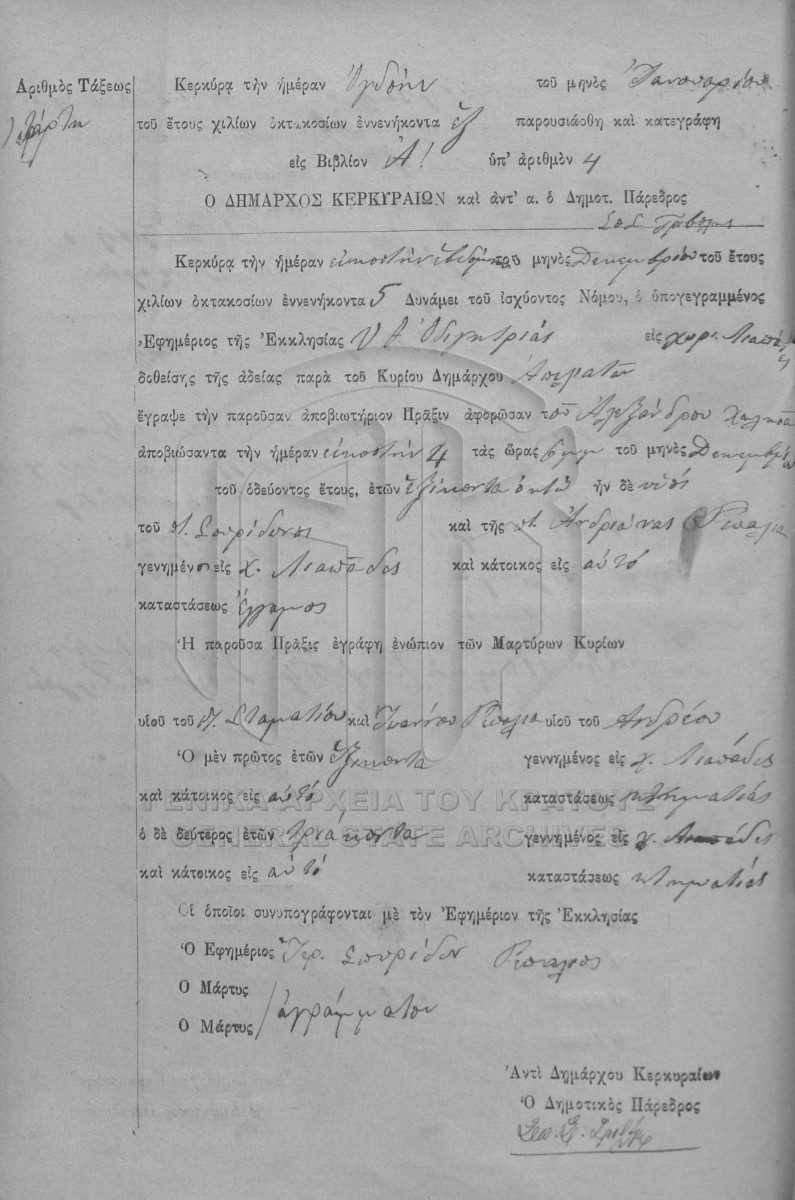 Ἀριθμὸς Τάξεως
Κερκύρᾳ τὴν ἡμέραν Ὀγδόην τοῦ μηνὸς Ἰανουαρίου
τοῦ ἔτους χιλίων ὀκτακοσίων ἐννενήκοντα ἕξ παρουσιάσθη καὶ κατεγράφη
εἰς Βιβλίον Α! ὑπ' ἀριθμὸν 4
Ο ΔΗΜΑΡΧΟΣ ΚΕΡΚΥΡΑΙΩΝ καὶ ἀντ' α. ὁ Δημοτ. Πάρεδρος
Κερκύρᾳ τὴν ἡμέραν εἰκοστὴν ἑβδόμην τοῦ μηνὸς Δεκεμβρίου τοῦ ἔτους
χιλίων ὀκτακοσίων ἐννενήκοντα 5 Δυνάμει τοῦ ἰσχύοντος Νόμου, ὁ ὑπογεγραμμένος
Ἐφημέριος τῆς Ἐκκλησίας Υ Θ Ὁδιγητριάς εἰς χωρ. Λιαπάδες
δοθείσης τῆς ἀδείας παρὰ τοῦ Κυρίου Δημάρχου
ἔγραψε τὴν παροῦσαν ἀποβιωτήριον Πρᾶξιν ἀφορῶσαν τοῦ Ἀλεξάνδρου
ἀποβιώσαντα τὴν ἡμέραν εἰκοστὴν 4 τὰς ὥρας 6 μμ τοῦ μηνὸς Δεκεμβρίου
τοῦ ὁδεύοντος ἔτους, ἐτῶν ἑξήκοντα ὀκτώ ἦν δὲ υἱός
τοῦ π. Σπυρίδωνος καὶ τῆς π. Ἀνδριάνας
γεννημένος εἰς χ. Λιαπάδες καὶ κάτοικος εἰς αὐτό
καταστάσεως Ἔγγαμος
Ἡ παροῦσα Πρᾶξις ἐγράφη ἐνώπιον τῶν Μαρτύρων Κυρίων
υἱοῦ τοῦ π. Σταματίου καὶ Ἰωάννου υἱοῦ τοῦ Ἀνδρέου
Ὁ μὲν πρῶτος ἐτῶν ἑξήκοντα γεννημένος εἰς χ. Λιαπάδες
καὶ κάτοικος εἰς αὐτό καταστάσεως κτηματίας
ὁ δὲ δεύτερος ἐτῶν τριάκοντα γεννημένος εἰς χ. Λιαπάδες
καὶ κάτοικος εἰς αὐτό καταστάσεως κτηματίας
Οἱ ὁποῖοι συνυπογράφονται μὲ τὸν Ἐφημέριον τῆς Ἐκκλησίας
Ὁ Ἐφημέριος Ἱερ. Σπυρίδων
Ὁ Μάρτυς
Ὁ Μάρτυς ἀγράμματοι
Ἀντὶ Δημάρχου Κερκυραίων
Ὁ Δημοτικὸς Πάρεδρος
ΓΕΝΙΚΑ ΑΡΧΕΙΑ ΤΟΥ ΚΡΑΤΟΥΣ
GENERAL STATE ARCHIVES